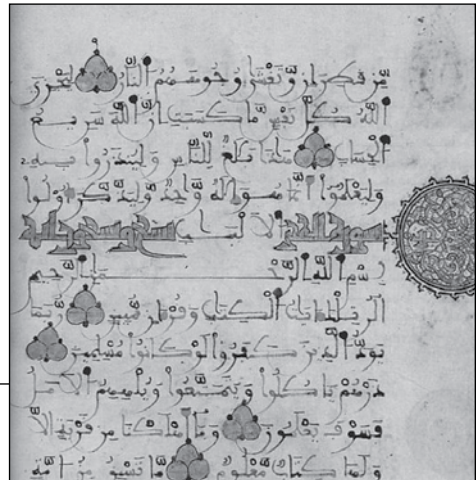 مِّن قَطِرَانٍ وَّتَغْشَىٰ وُجُوهَهُمُ النَّارُ لِيَجْزِيَ
اللَّهُ كُلَّ نَفْسٍ مَّا كَسَبَتْ إِنَّ اللَّهَ سَرِيعُ
الْحِسَابِ هَٰذَا بَلَٰغٌ لِّلنَّاسِ وَلِيُنذَرُوا بِهِ
وَلِيَعْلَمُوا أَنَّمَا هُوَ إِلَٰهٌ وَّاحِدٌ وَّلِيَذَّكَّرَ أُولُوا
سورة الحجر الالْبَٰبِ تسع وتسعون اية
بِسْمِ اللَّهِ الرَّحْمَٰنِ الرَّحِيمِ
الر تِلْكَ ءَايَٰتُ الْكِتَٰبِ وَقُرْءَانٍ مُّبِينٍ رُّبَمَا
يَوَدُّ الَّذِينَ كَفَرُوا لَوْ كَانُوا مُسْلِمِينَ
ذَرْهُمْ يَاكُلُوا وَيَتَمَتَّعُوا وَيُلْهِهِمُ الْأَمَلُ
فَسَوْفَ يَعْلَمُونَ وَمَا أَهْلَكْنَا مِن قَرْيَةٍ إِلَّا
وَلَهَا كِتَابٌ مَّعْلُومٌ مَّا تَسْبِقُ مِنْ أُمَّةٍ